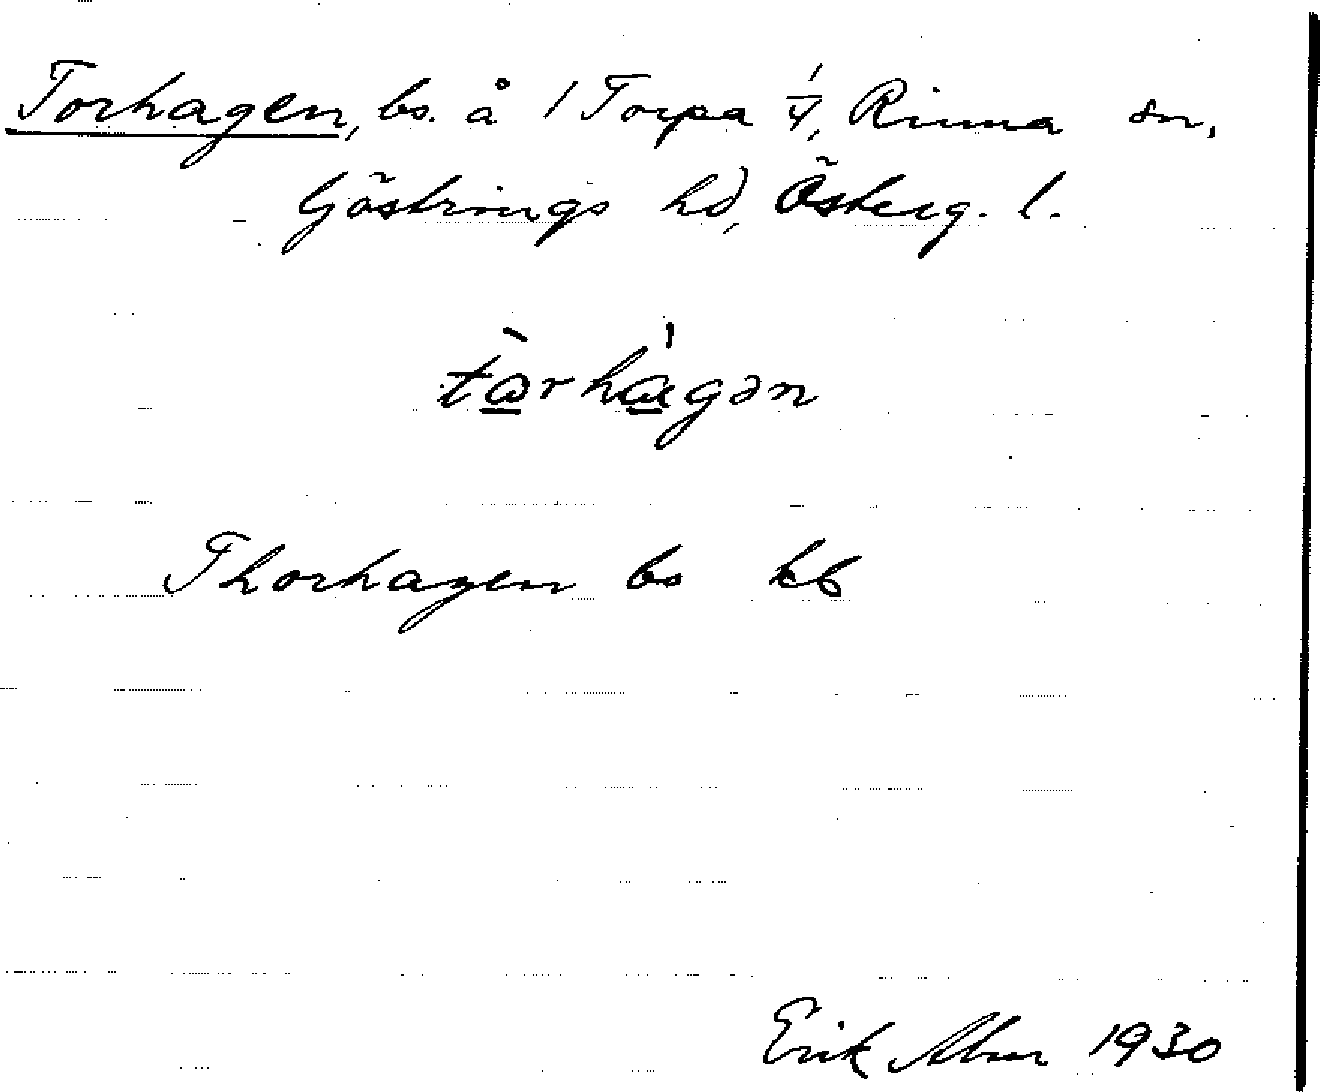 Torhagen, bs. å 1 Torpa 1/4, Rinna sn,
Göstrings hd, Österg. l.
tòrhá̱gən
Thorhagen bs kb
Erik Abm 1930